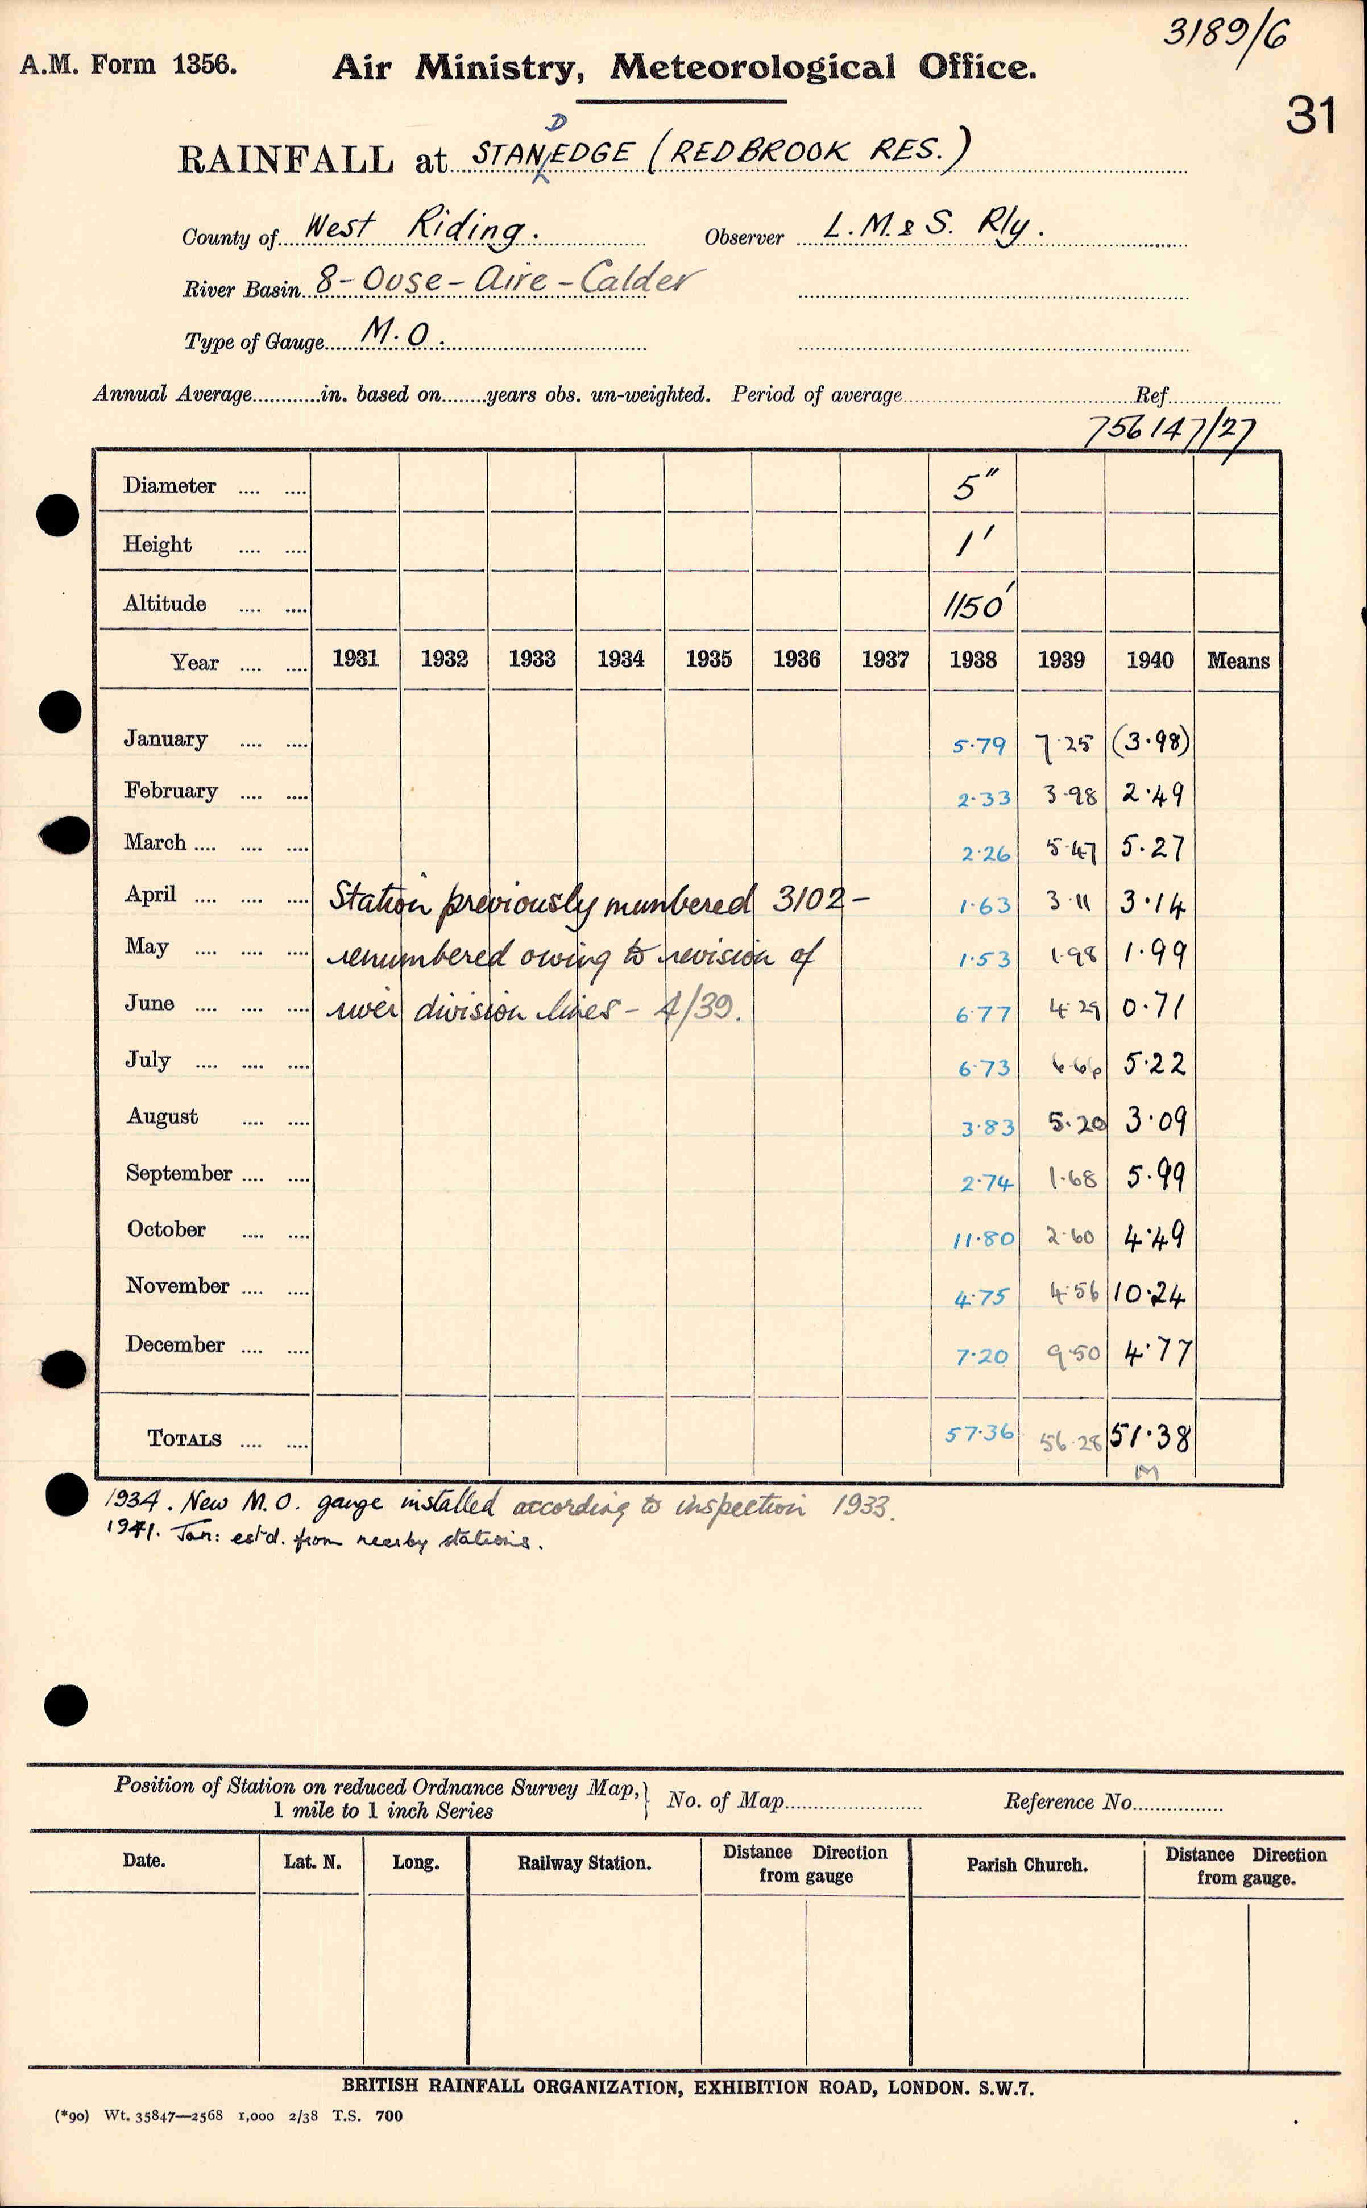 3189/6
A.M. Form 1356. Air Ministry, Meteorological Office.
31
D
RAINFALL at STANEDGE (REDBROOK RES.)
County of West Riding. Observer L.M. & S. Rly.
River Basin 8-Ouse-Aire-Calder
Type of Gauge M.O.
Annual Average............in. based on........years obs. un-weighted. Period of average Ref
756147/27
Diameter .... .... 5"
Height .... .... 1'
Altitude .... .... 1150'
Year .... .... 1931 1932 1933 1934 1935 1936 1937 1938 1939 1940 Means
January .... .... 5.79 7.25 (3.98)
February .... .... 2.33 3.98 2.49
March .... .... .... 2.26 5.47 5.27
April .... .... .... Station previously numbered 3102 - 1.63 3.11 3.14
May .... .... .... renumbered owing to revision of 1.53 1.98 1.99
June .... .... .... river division lines - 4/39. 6.77 4.29 0.71
July .... .... .... 6.73 6.66 5.22
August .... .... 3.83 5.20 3.09
September .... .... 2.74 1.68 5.99
October .... .... 11.80 2.60 4.49
November .... .... 4.75 4.56 10.24
December .... .... 7.20 9.50 4.77
TOTALS .... .... 57.36 56.28 51.38
M
1934. New M.O. gauge installed according to inspection 1933.
1941. Jan: est'd. from nearby stations.
Position of Station on reduced Ordnance Survey Map, 1 mile to 1 inch Series } No. of Map Reference No.
Date. Lat. N. Long. Railway Station. Distance Direction from gauge Parish Church. Distance Direction from gauge.
BRITISH RAINFALL ORGANIZATION, EXHIBITION ROAD, LONDON. S.W.7.
(*90) Wt. 35847—2568 1,000 2/38 T.S. 700